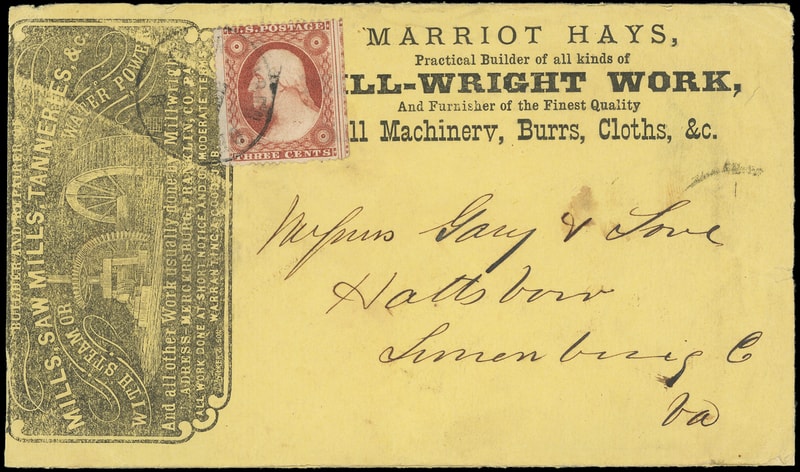 MARRIOT HAYS,
Practical Builder of all kinds of
ILL-WRIGHT WORK,
And Furnisher of the Finest Quality
ll Machinery, Burrs, Cloths, &c.
U.S. POSTAGE
THREE CENTS
MILLS, SAW MILLS, TANNERIES, &c.
WITH STEAM OR WATER POWE
And all other Work usually done by Millwri
ADRESS, MERCERSBURG, FRANKLIN CO. PA.
ALL WORK DONE AT SHORT NOTICE AND ON MODERATE TER
WARRANTING A GOOD
Messrs Gary & Love
Hattsbow
Lunenburg C
Va